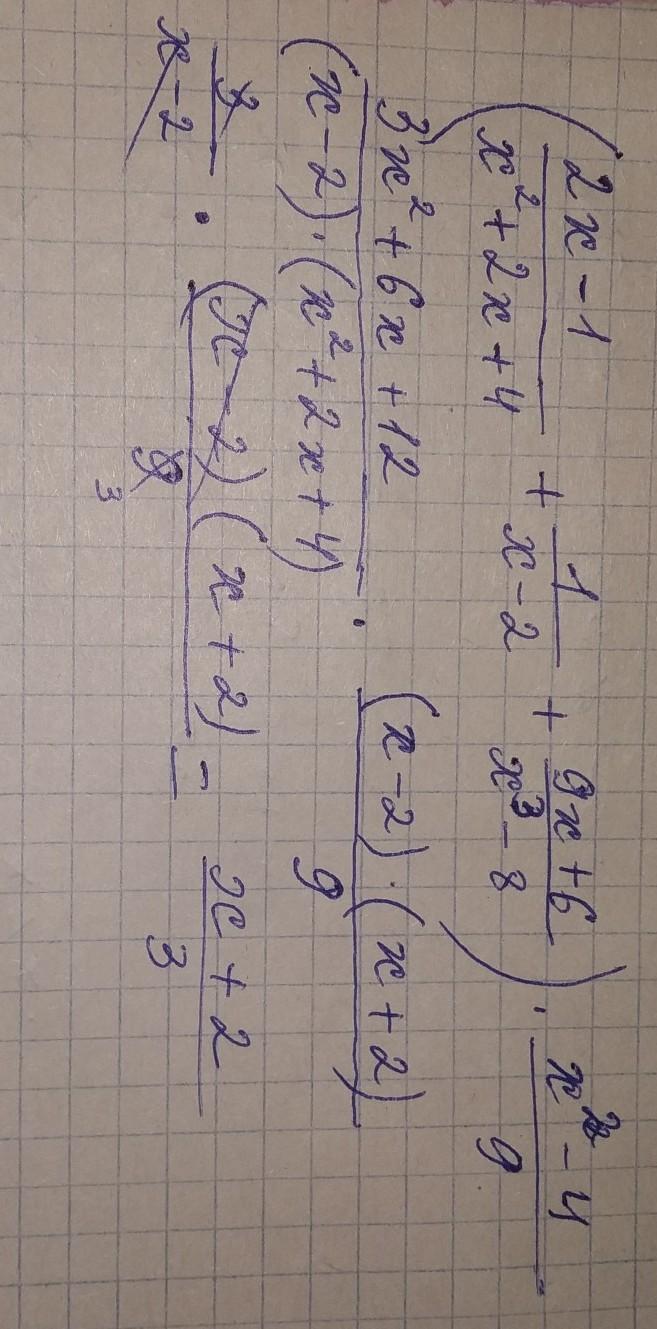 (2x-1/x²+2x+4 + 1/x-2 + 9x+6/x³-8) · x²-4/9
3x²+6x+12/(x-2)·(x²+2x+4) · (x-2)·(x+2)/9
3/x-2 · (x-2)(x+2)/9 3 = x+2/3